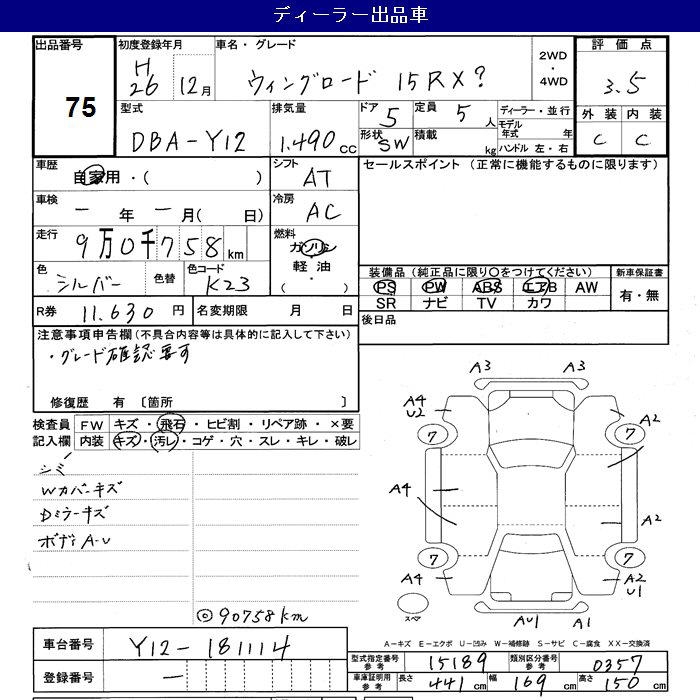 ディーラー出品車
出品番号
75
初度登録年月
H 26 12月
車名・グレード
ウィングロード 15RX?
2WD ・ 4WD
評価点
3.5
型式
DBA-Y12
排気量
1.490 CC
ドア 5
形状 SW
定員 5 人
積載 kg
ディーラー・並行
モデル年式 年
ハンドル 左・右
外装 内装
C C
車歴
自家用・( )
シフト AT
セールスポイント (正常に機能するものに限ります)
車検
― 年 ― 月( 日)
冷房 AC
走行
9万0千758 km
燃料
ガソリン
軽油
・
色 シルバー
色替
色コード K23
装備品(純正品に限り○をつけてください)
新車保証書
PS PW ABS エアB AW
SR ナビ TV カワ
有・無
R券 11.630 円
名変期限 月 日
後日品
注意事項申告欄(不具合内容等は具体的に記入して下さい)
・グレード確認要す
修復歴 有 〔箇所 〕
検査員記入欄
FW キズ・飛石・ヒビ割・リペア跡・×要
内装 キズ・汚レ・コゲ・穴・スレ・キレ・破レ
シミ
Wカバーキズ
Dミラーキズ
ボディA-U
◎90758km
A3 A3
A4 U2
A2
7 7
A4
A2
7 7
A4
A2 U1
スペア
AU1 A1
A-キズ E-エクボ U-凹み W-補修跡 S-サビ C-腐食 XX-交換済
車台番号 Y12-181114
登録番号 ―
型式指定番号 参考 15189
類別区分番号 参考 0357
車庫証明用 参考
長さ 441 cm 幅 169 cm 高さ 150 cm